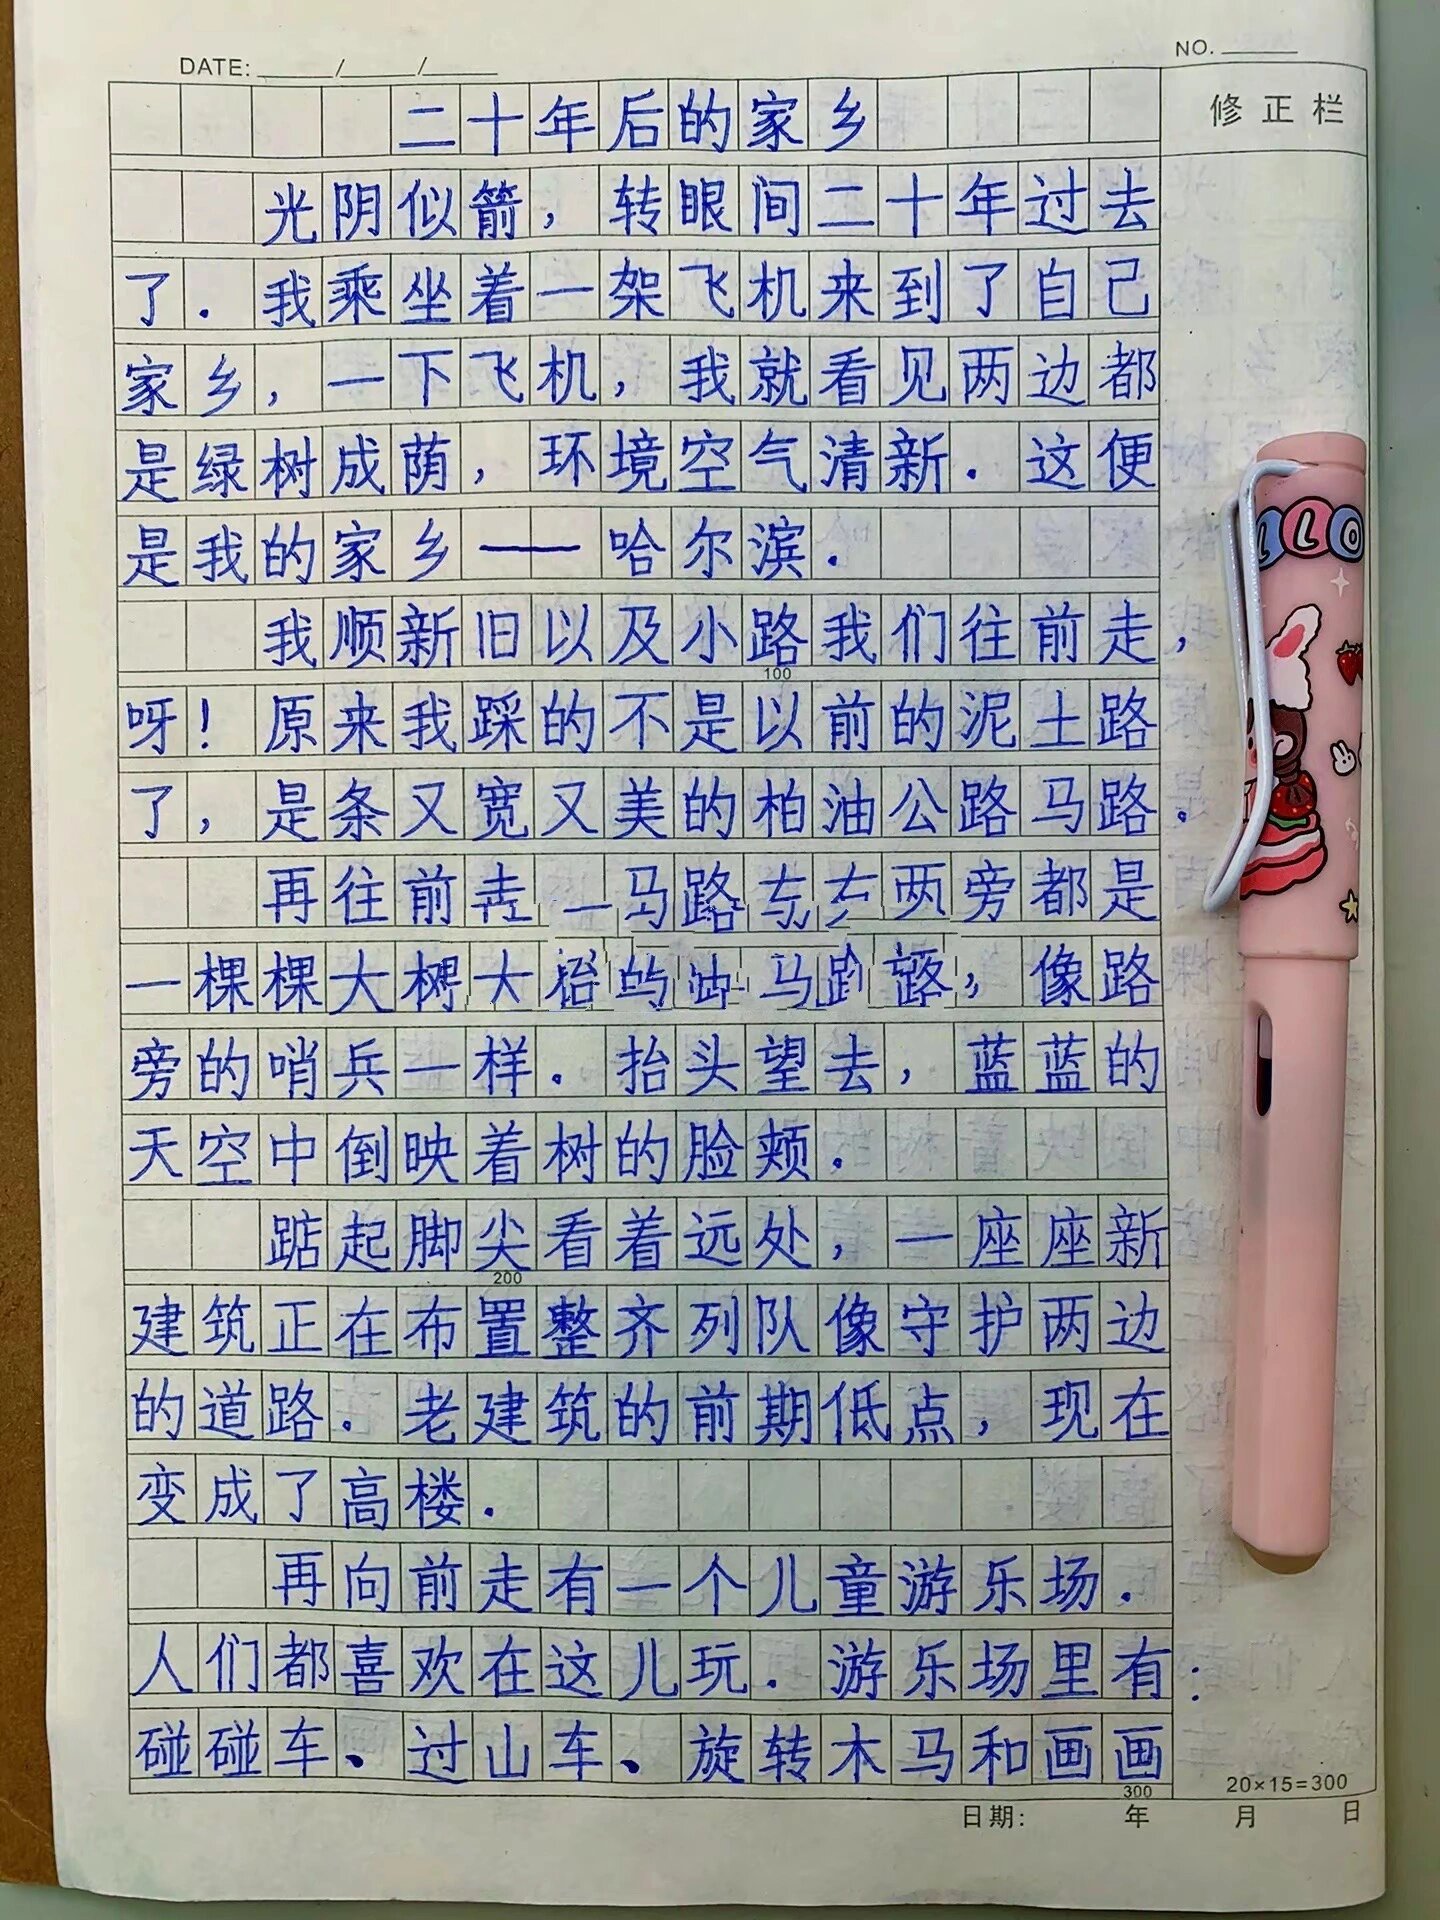 DATE: / /
NO.
修正栏
二十年后的家乡
光阴似箭，转眼间二十年过去
了．我乘坐着一架飞机来到了自己
家乡，一下飞机，我就看见两边都
是绿树成荫，环境空气清新．这便
是我的家乡——哈尔滨．
我顺新旧以及小路我们往前走，
100
呀！原来我踩的不是以前的泥土路
了，是条又宽又美的柏油公路马路．
再往前 马路 两旁都是
一棵棵大树大 的 马 路，像路
旁的哨兵一样．抬头望去，蓝蓝的
天空中倒映着树的脸颊．
踮起脚尖看着远处，一座座新
200
建筑正在布置整齐列队像守护两边
的道路．老建筑的前期低点，现在
变成了高楼．
再向前走有一个儿童游乐场．
人们都喜欢在这儿玩．游乐场里有：
碰碰车、过山车、旋转木马和画画
300
20×15=300
日期： 年 月 日
LLO